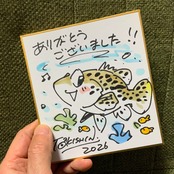 ありがとう
ございました!!
@KISHIN.
2026